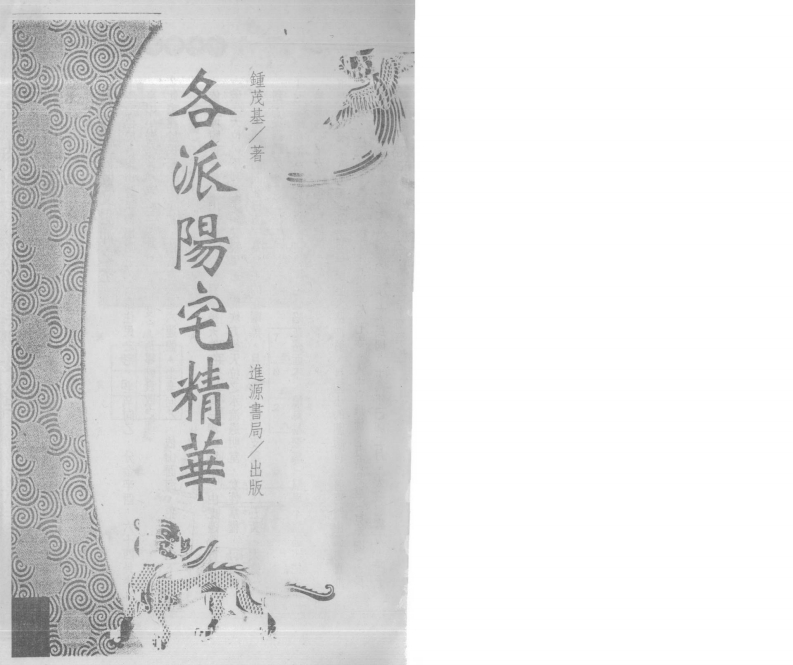 鍾茂基／著
各派陽宅精華
進源書局／出版